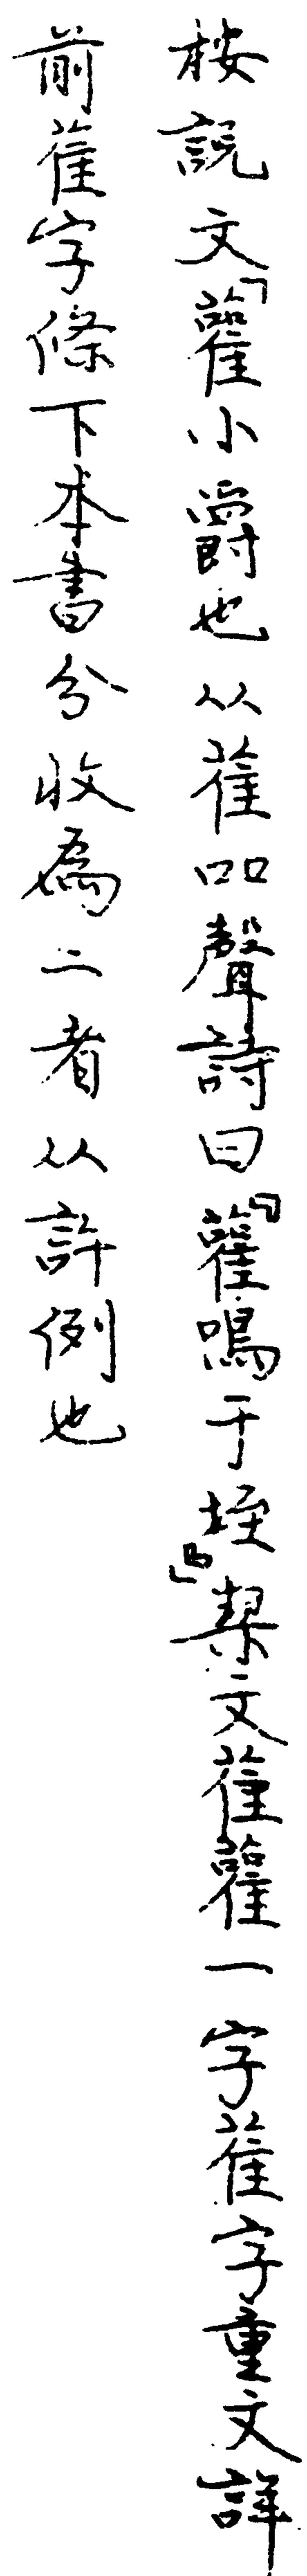 按説文「雚小爵也从萑吅聲詩曰『雚鳴于垤』」栔文萑雚一字萑字重文詳
前萑字條下本書分收爲二者从許例也